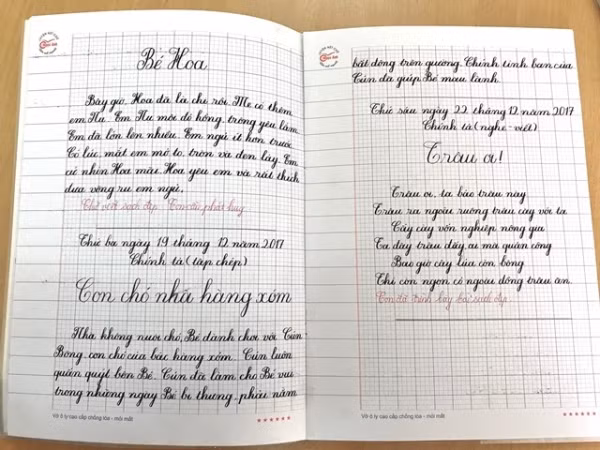 Bé Hoa
Bây giờ, Hoa đã là chị rồi. Mẹ có thêm
em Nụ. Em Nụ môi đỏ hồng, trông yêu lắm.
Em đã lớn lên nhiều. Em ngủ ít hơn trước.
Có lúc, mắt em mở to, tròn và đen láy. Em
cứ nhìn Hoa mãi. Hoa yêu em và rất thích
đưa võng ru em ngủ.
Chữ viết sạch đẹp. Con cố phát huy
Thứ ba ngày 19 tháng 12 năm 2017
Chính tả (tập chép)
Con chó nhà hàng xóm
Nhà không nuôi chó, Bé đành chơi với Cún
Bông, con chó của bác hàng xóm. Cún luôn
quấn quýt bên Bé. Cún đã làm cho Bé vui
trong những ngày Bé bị thương, phải nằm
Vở ô ly cao cấp chống lóa - mỏi mắt
bất động trên giường. Chính tình bạn của
Cún đã giúp Bé mau lành.
Thứ sáu ngày 22 tháng 12 năm 2017
Chính tả (nghe - viết)
Trâu ơi!
Trâu ơi, ta bảo trâu này
Trâu ra ngoài ruộng trâu cày với ta
Cấy cày vốn nghiệp nông gia
Ta đây trâu đấy, ai mà quản công
Bao giờ cây lúa còn bông
Thì còn ngọn cỏ ngoài đồng trâu ăn.
Con đã trình bày bài sạch đẹp
Vở ô ly cao cấp chống lóa - mỏi mắt